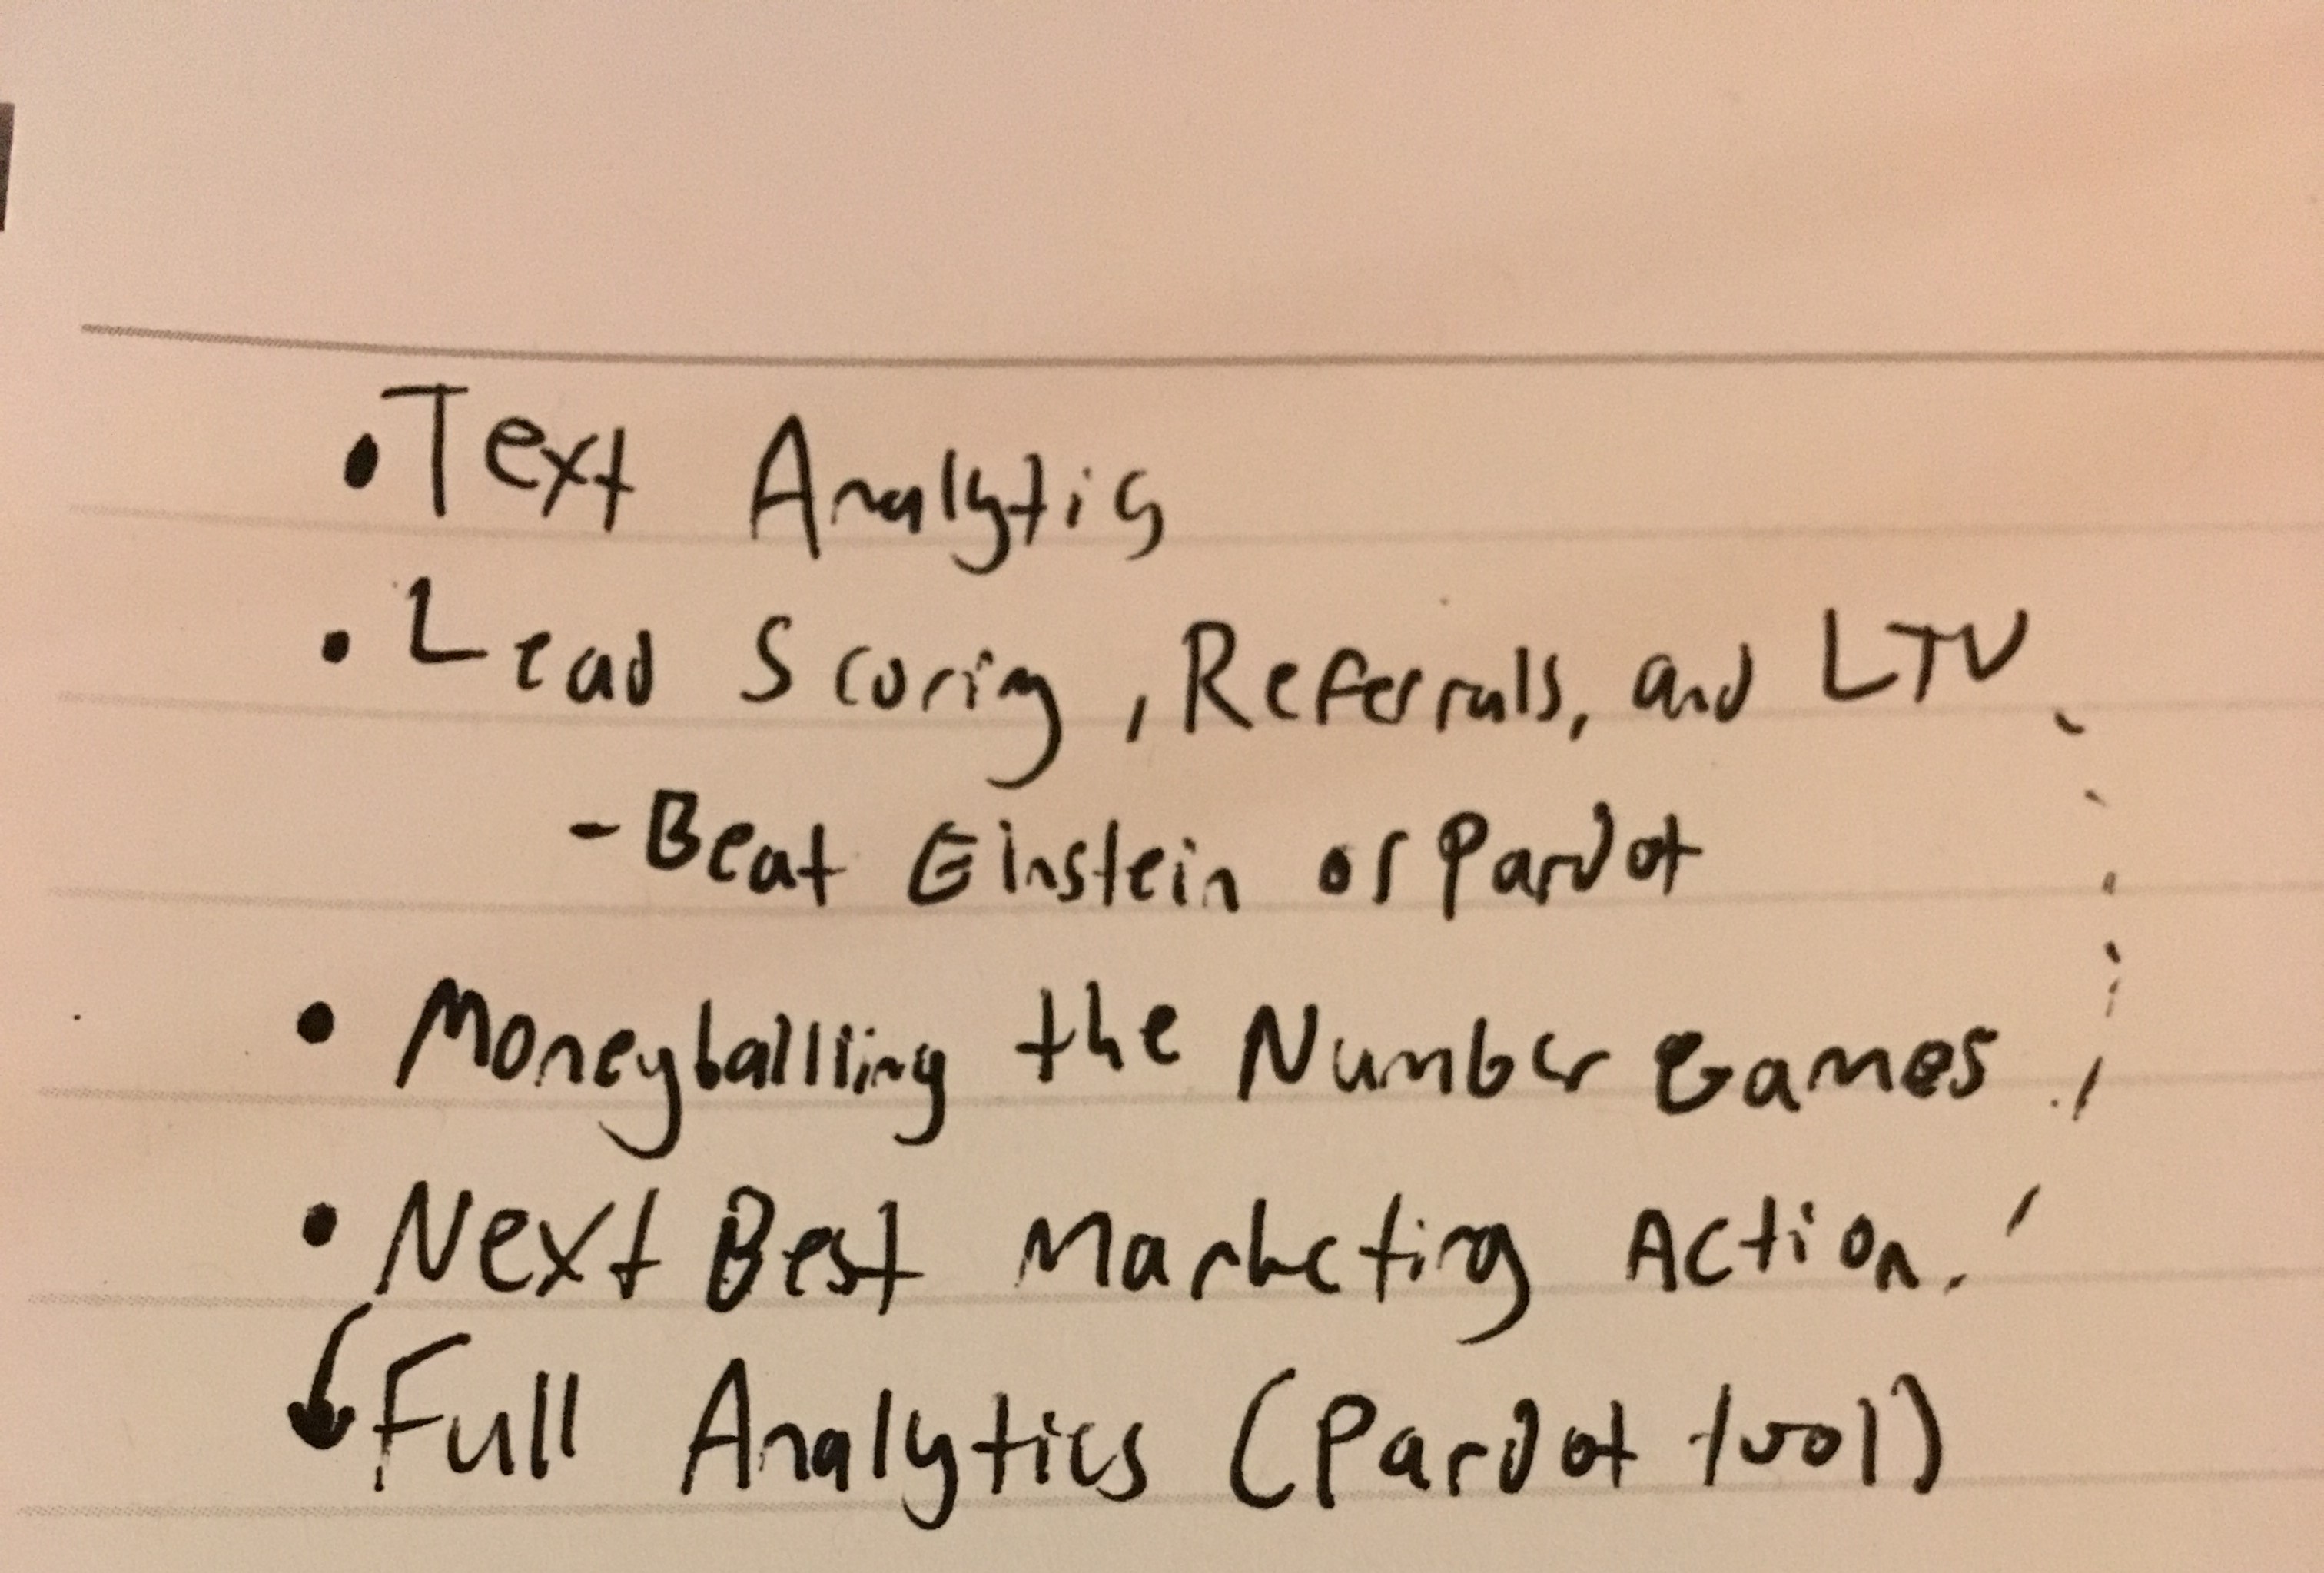 • Text Analytics
• Lead Scoring, Referrals, and LTV
- Beat Einstein or Pardot
• Moneyballling the Number Games
• Next Best Marketing Action.
Full Analytics (Pardot tool)